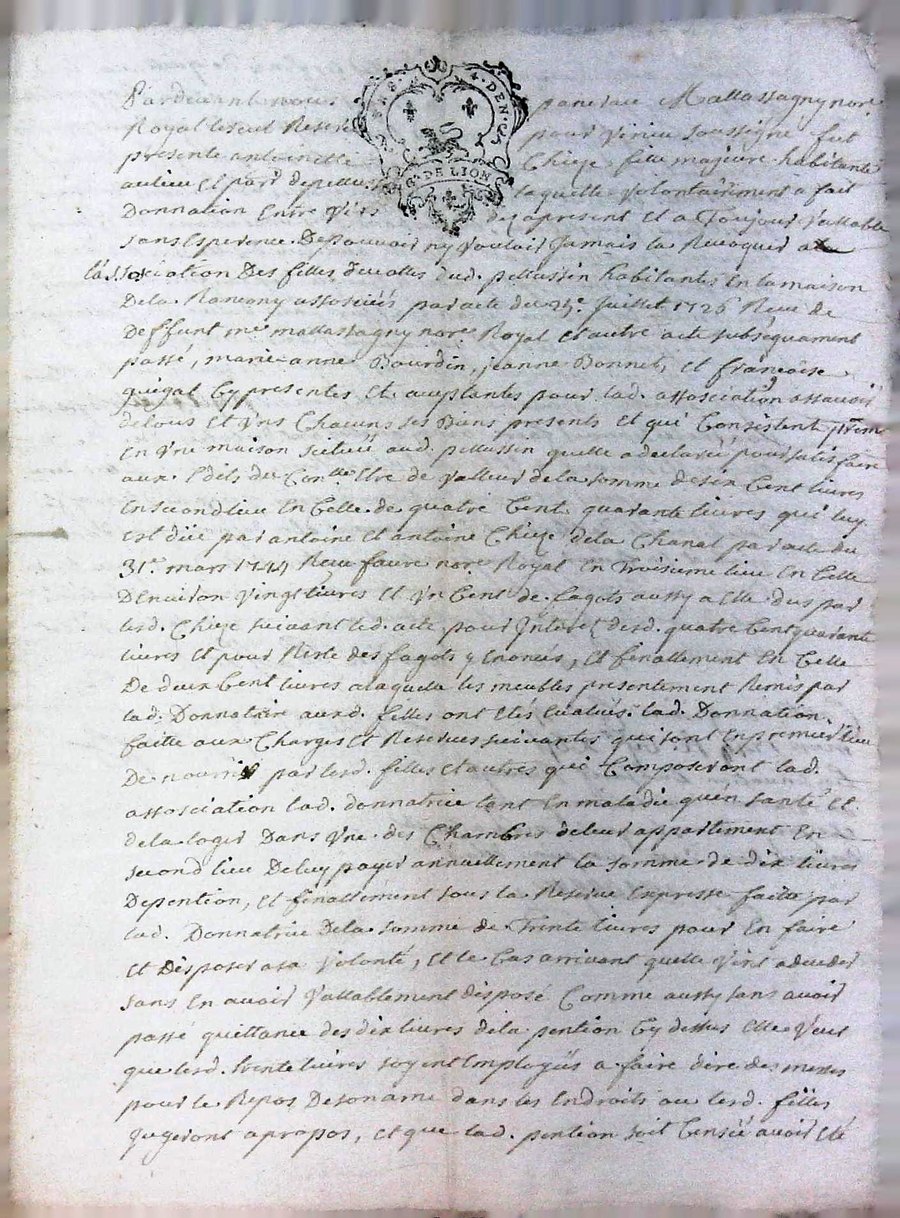 Pardevant nous
Royal les cul Reservé pour Virieu soussigné fut
presente antoinette Chieze fille majeure habitante
au lieu et par. de pellussin laquelle volontairement a fait
Donnation Entre Vifs dez apresent et a Toujour Vallable
sans Esperence De Pouvoir ny Vouloir Jamais la Revoquer a
l'assosiation Des filles devottes dud. pellussin habitantes En la maison
De la associées par acte du 24e. Juillet 1726 Receu de
deffunt me mallassagny nore Royal et autre acte subsequament
passé, marie anne Bourdin, jeanne Bonnet, et françoise
Cy presentes et aceptantes pour lad. assosiation assavoir
de tous et Uns Chacuns ses Biens presents et qui Consistent prem.
En Une maison scituée aud. pellussin quelle a declaré pour satisfaire
aux Edits du Conlle Etre de Valleur de la somme de six Cent livres
En second lieu En Celle de quatre Cent quarante livres qui luy
est düe par antoine et antoine Chieze de la Chanal par acte du
31e. mars 1744 Receu faure nore Royal En Troisieme lieu En Celle
D'Environ Vingt livres et Un Cent de fagots aussy a Elle dus par
lesd. Chieze suivant led. acte pour Interet desd. quatre Cent quarante
livres et pour Reste des fagots y Enoncés, et finallement En Celle
De deux Cent livres a laquelle les meubles presentement Remis par
lad. Donnatrice auxd. filles ont etés evalués. lad. Donnation
faitte aux Charges et Reserves suivantes qui sont En premier lieu
De nourrir par lesd. filles et autres qui Composeront lad.
assosiation lad. donnatrice tant En maladie qu'En santé et
de la loger Dans Une des Chambres de leur appartement En
second lieu De luy payer annuellement la somme de dix livres
De pention, et finallement sous la Reserve Expresse faitte par
lad. Donnatrice De la somme de Trente livres pour En faire
et Disposer a sa Volonté, et le Cas arrivant quelle Vint a deceder
sans En avoir Vallablement disposé Comme aussy sans avoir
passé quittance des dix livres de la pention Cy dessus Elle Veut
que lesd. trente livres soyent Employées a faire dire des messes
pour le Repos De son ame dans les Endroits ou lesd. filles
jugeront a propos, et que lad. pention soit Censée avoir eté